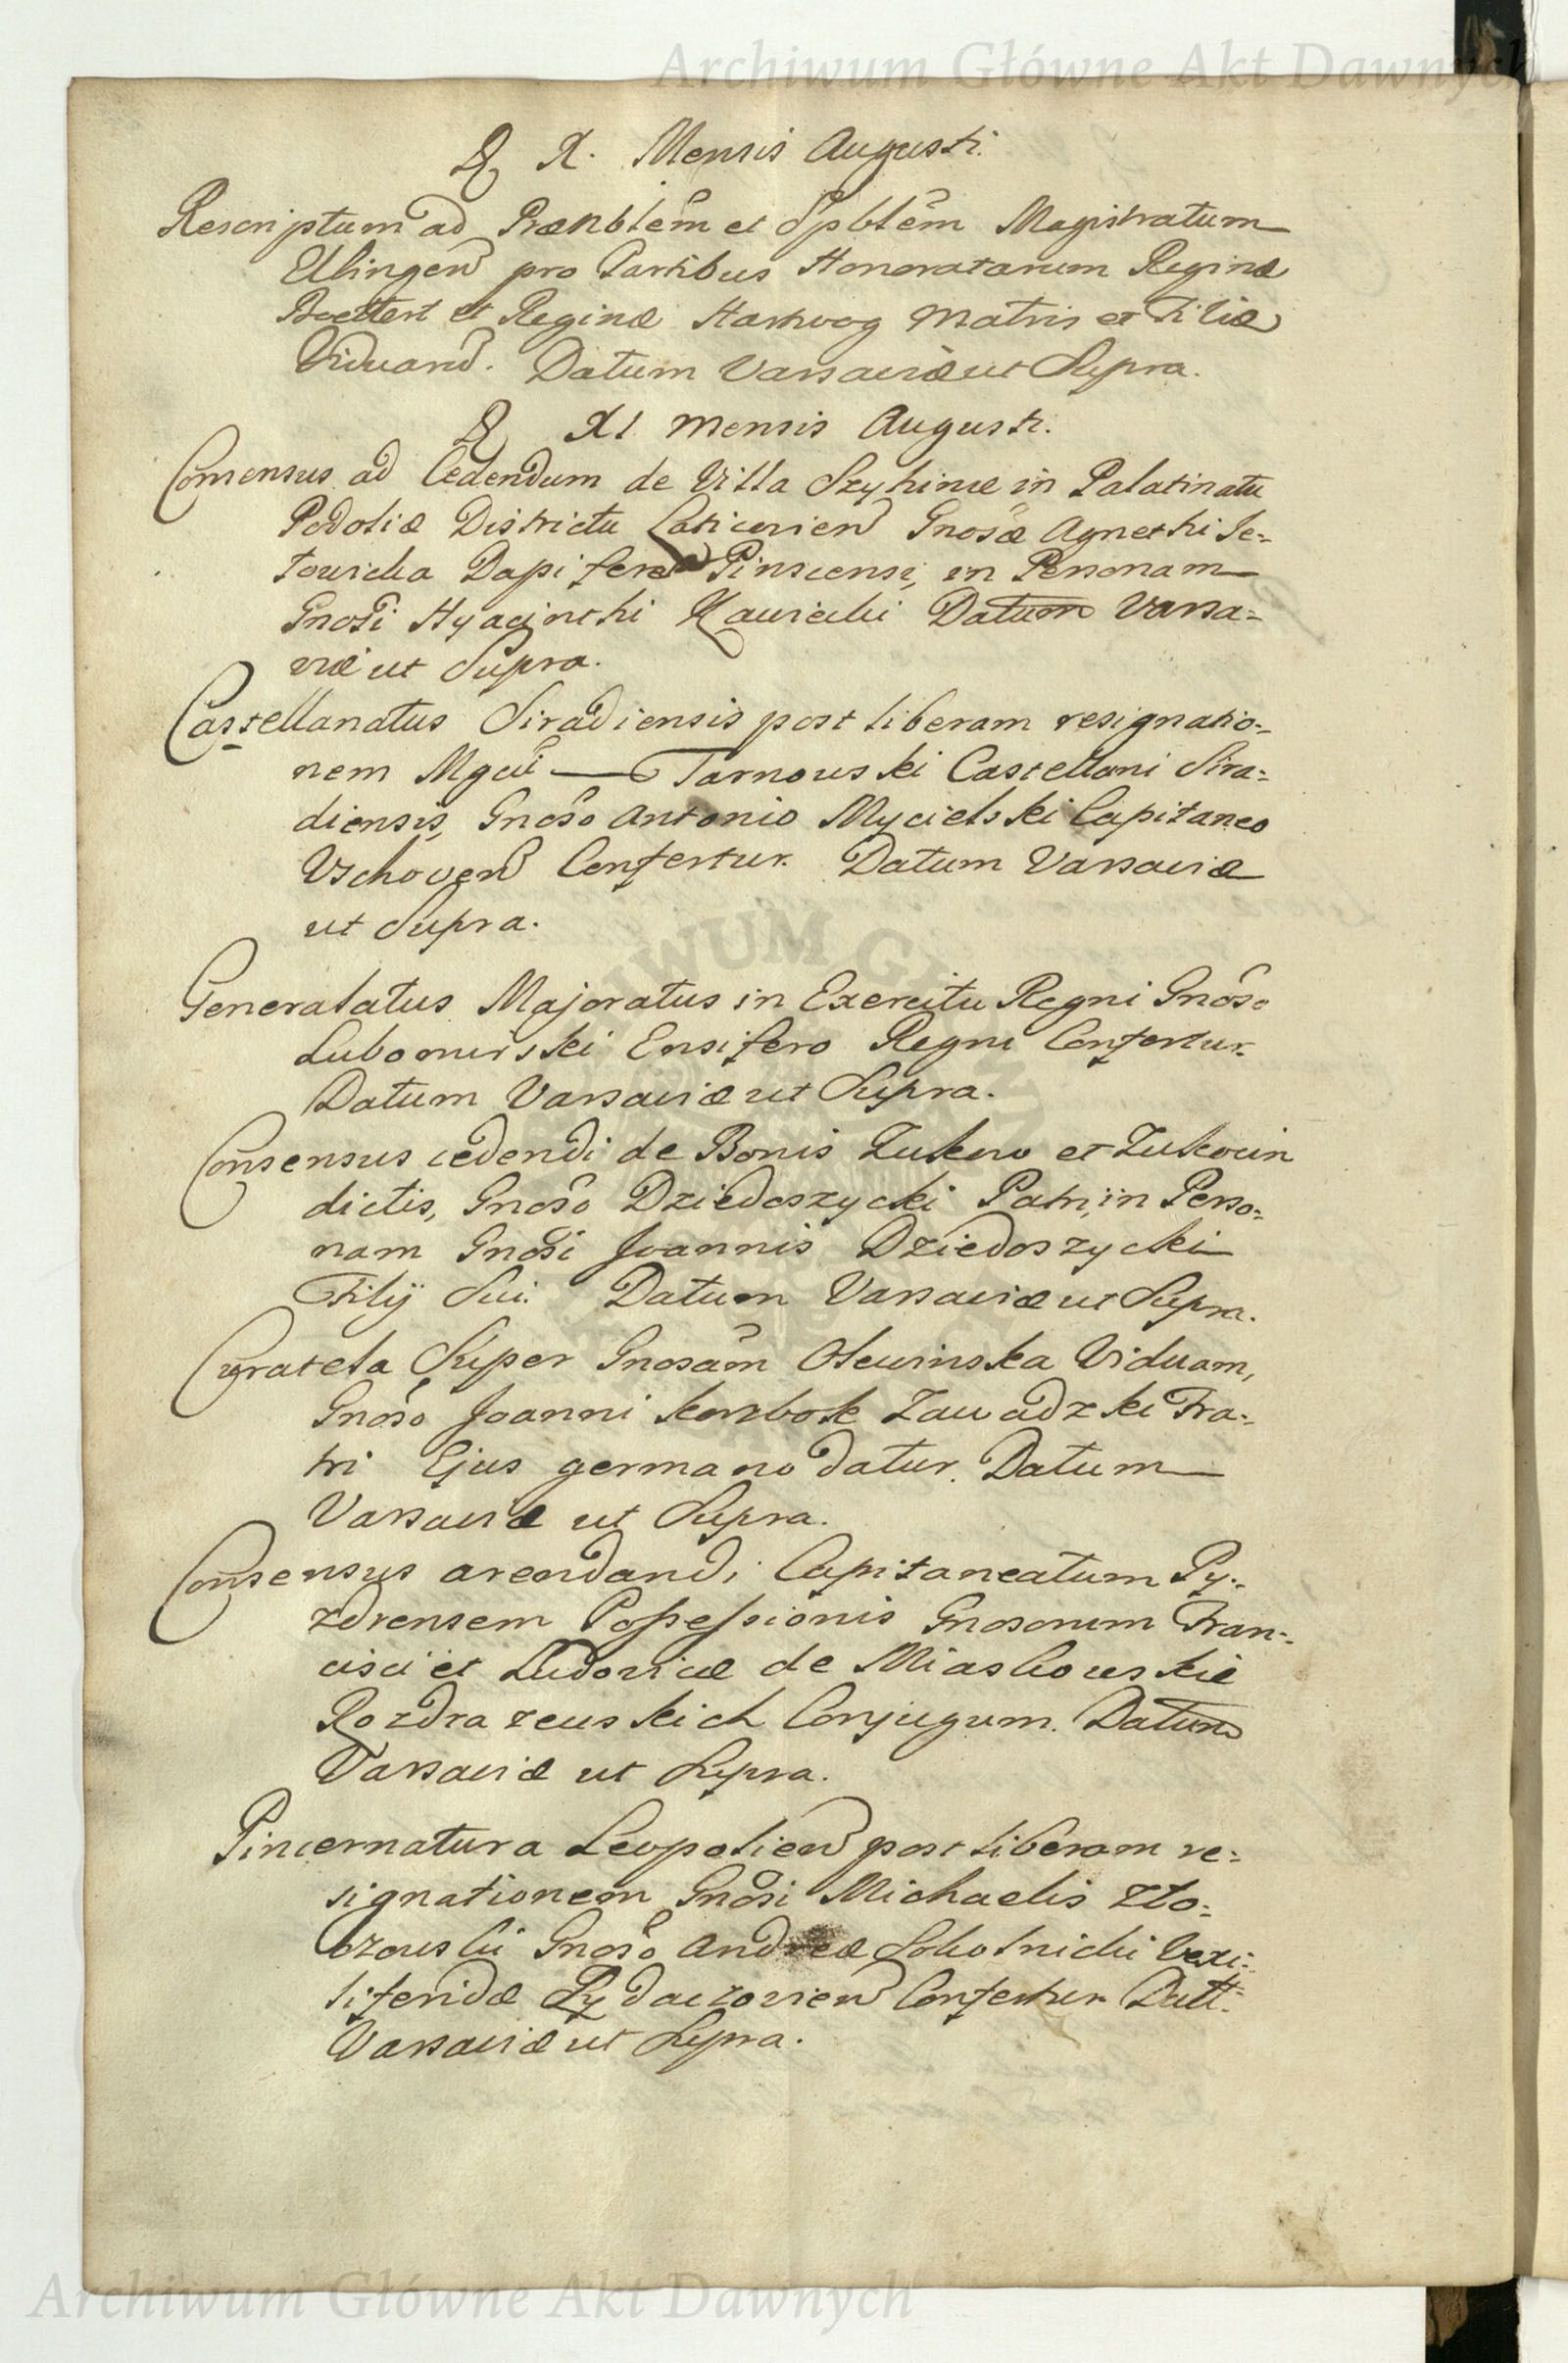 Archiwum Główne Akt Dawnych
D. X. Mensis Augusti.
Rescriptum ad Prænbłem et Spbłem Magistratum
Elbingen pro Partibus Honoratarum Reginæ
Boettert et Reginæ Hartwog Matris et Filiæ
Viduarum. Datum Varsaviæ ut Supra.
D. XI Mensis Augusti.
Consensus ad Cedendum de Villa Szyhince in Palatinatu
Podoliæ Districtu Laticovien Gnosæ Agnethi Je=
towicka Dapiferæ Pinscensi, in Personam
Gnosi Hyacinthi Kawiecki Datum Varsa=
viæ ut Supra.
Castellanatus Siradiensis post liberam resignatio=
nem Mgci — Tarnowski Castellani Sira=
diensis, Gnoso Antonio Mycielski Capitaneo
Vschoven Confertur. Datum Varsaviæ
ut Supra.
Generalatus Majoratus in Exercitu Regni Gnoso
Lubomirski Ensifero Regni Confertur.
Datum Varsaviæ ut Supra.
Consensus cedendi de Bonis Zukow et Zukocin
dictis, Gnoso Dziedoszycki Patri, in Perso=
nam Gnosi Joannis Dziedoszycki
Filij Sui. Datum Varsaviæ ut Supra.
Curatela Super Gnosam Olewinska Viduam,
Gnoso Joanni Korzbok Zawadzki Fra=
tri Ejus germano datur. Datum
Varsaviæ ut Supra.
Consensus arendandi Capitaneatum Py=
zdrensem Possessionis Gnosorum Fran=
cisci et Ludovicæ de Miaskowskie
Rozdrazewskich Conjugum. Datum
Varsaviæ ut Supra.
Pincernatura Leopolien post liberam re=
signationem Gnosi Michaelis Zło=
czowski Gnoso Andreæ Sokolnicki Vexi=
liferidæ Zydaczovien Confertur Datt.
Varsaviæ ut Supra.
Archiwum Główne Akt Dawnych